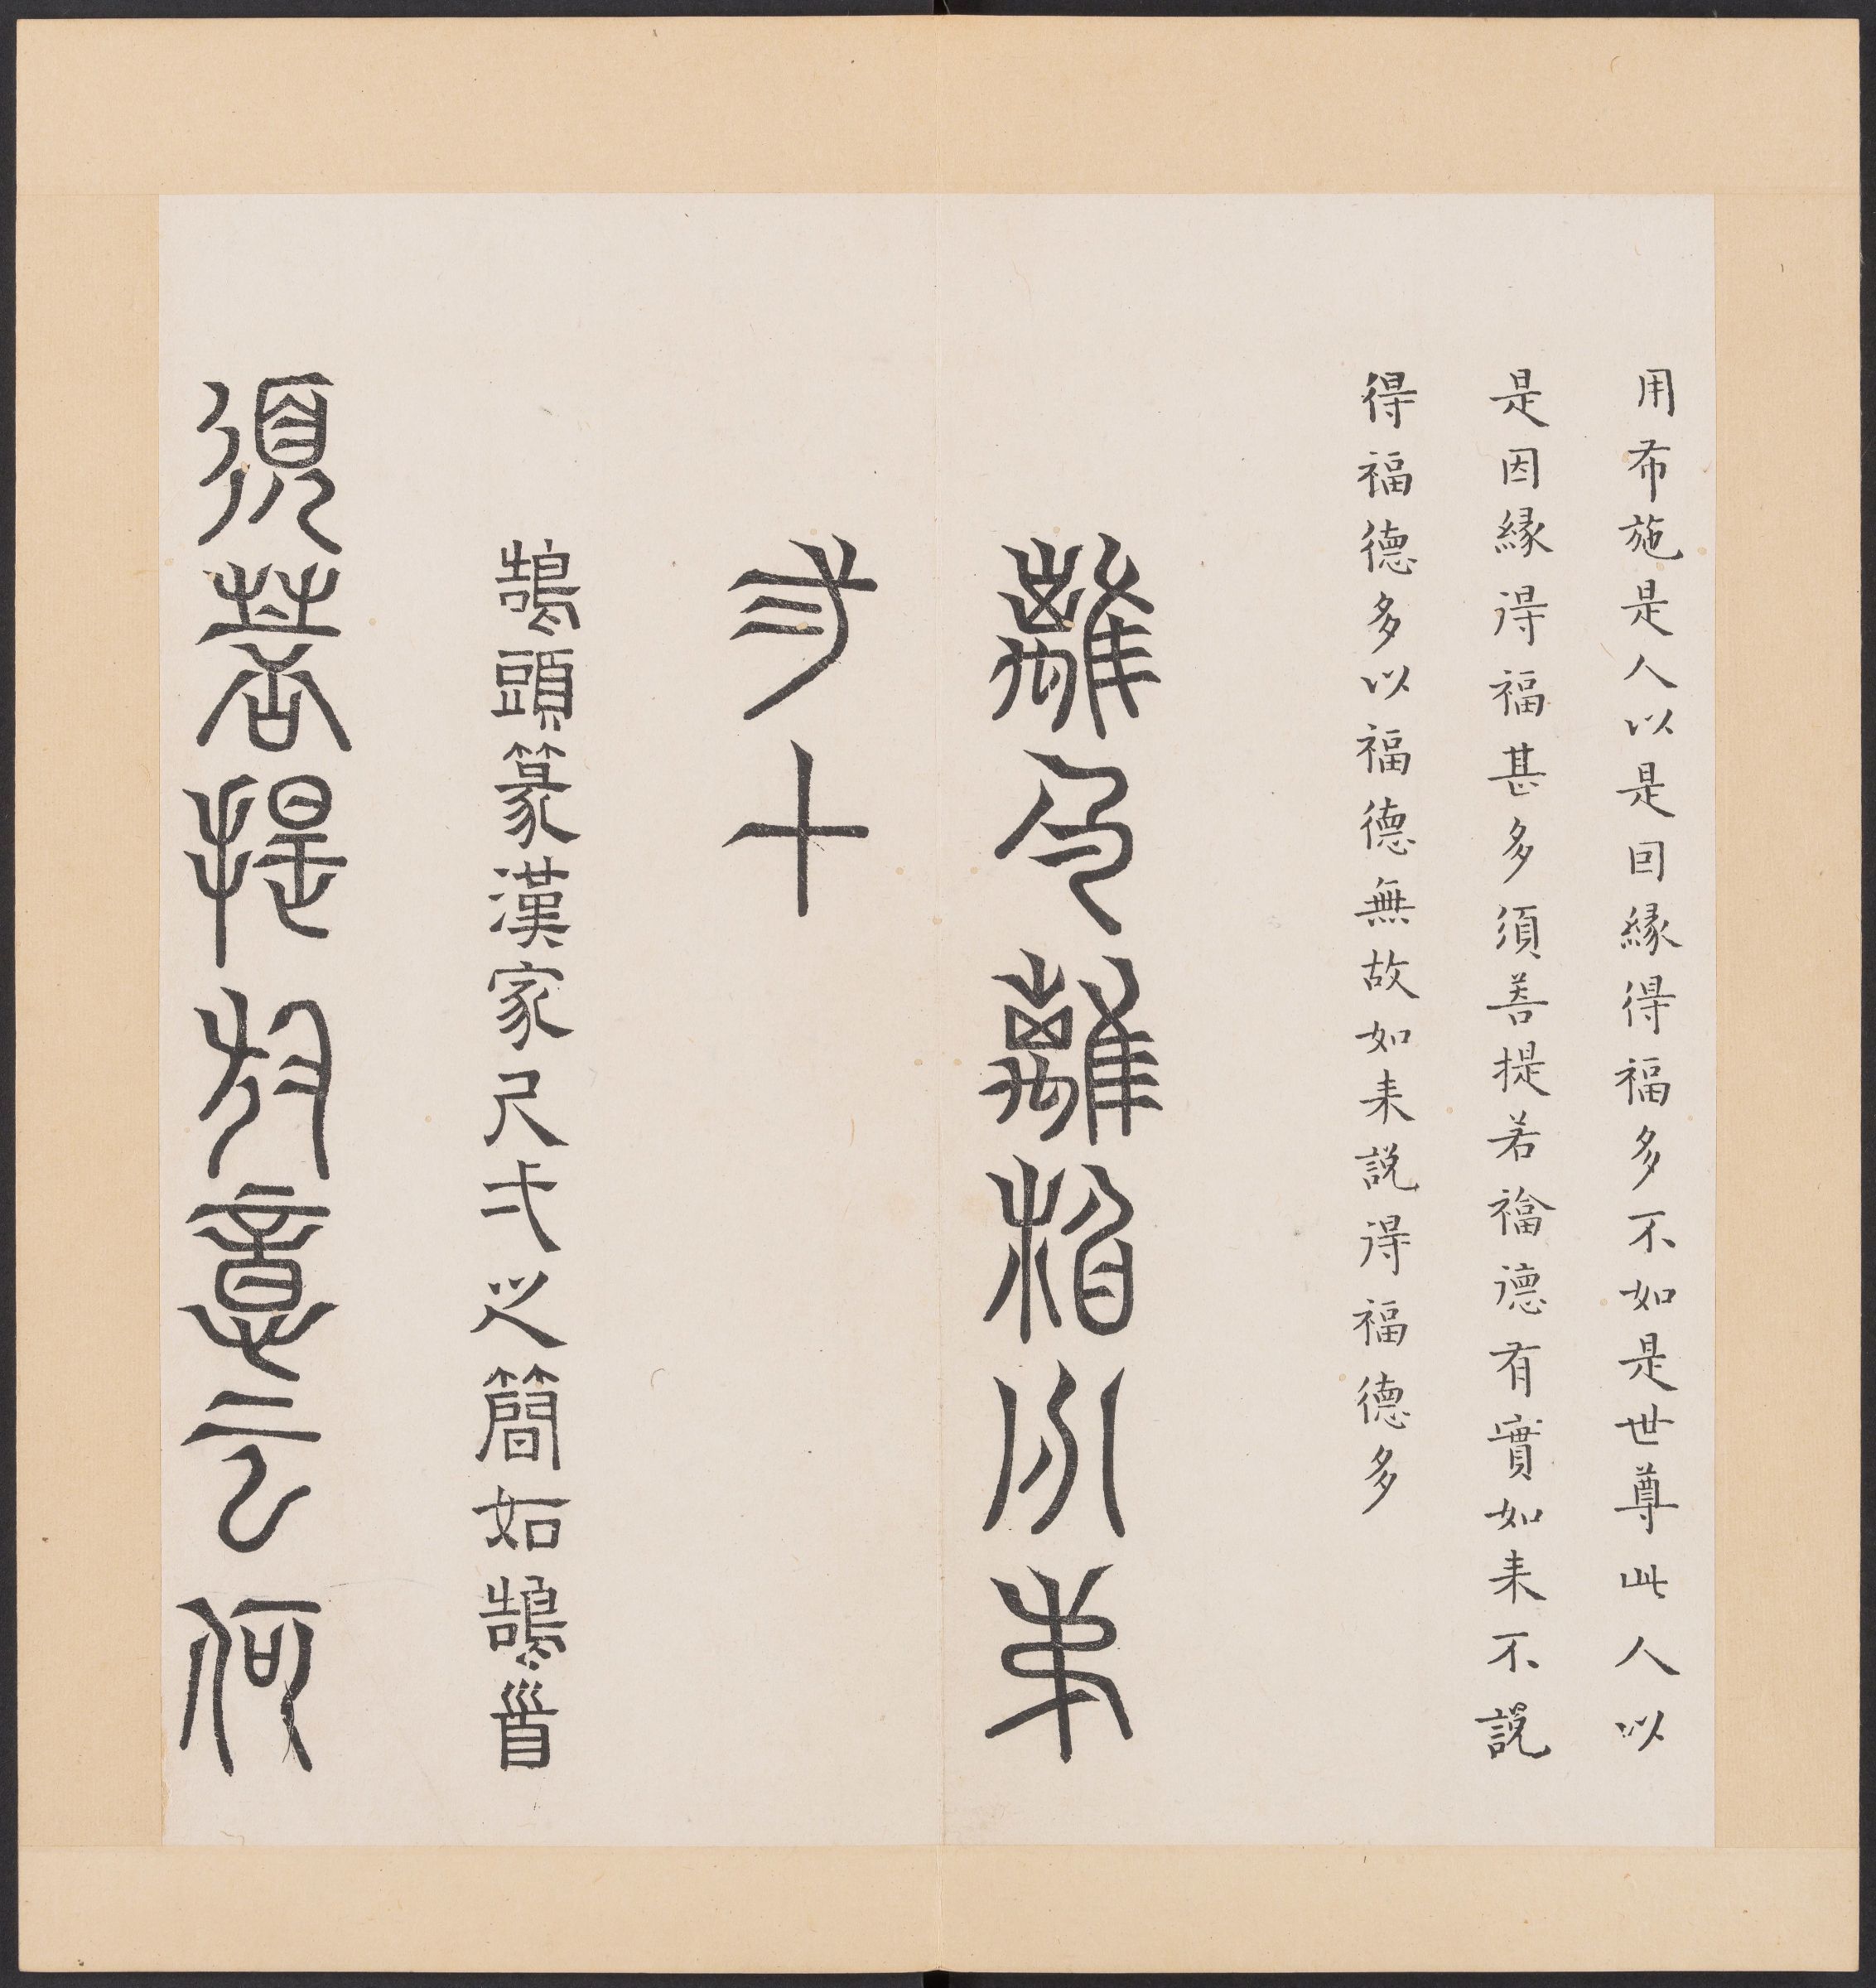 用布施是人以是因緣得福多不如是世尊此人以
是因緣得福甚多須菩提若福德有實如来不說
得福德多以福德無故如来說得福德多
離色離相分弟
二十
鵠頭篆漢家尺弍之簡如鵠首
須菩提於意云何